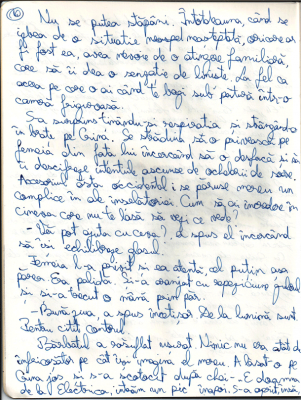 16
Nu se putea stăpâni. Întotdeauna, când se
izbea de o situație neaşteptată, oricare ar
fi fost ea, avea nevoie de o atingere familiară,
care să îi dea o senzație de liniște. La fel ca
aceea pe care o ai când te bagi sub pătură într-o
cameră friguroasă.
S-a surprins ținându-și respirația și strângând
în brațe pe Corina. Se străduia să o privească pe
femeia din fața lui încercând să o desfacă și să
îi descifreze identitatea ascunsă de ochelarii de soare.
Accesoriul ăsta occidental i se păruse mereu un
complice în ale insolatoriei. Cum să ai încredere în
cineva care nu te lasă să vezi ce vede?
- Vă pot ajuta cu ceva?, a spus el încercând
să-și echilibreze glasul.
Femeia l-a privit și ea atentă, cel puțin așa
părea. Era palidă, și-a aranjat cu repeziciune gulerul
și și-a trecut o mână prin păr.
- Bună ziua, a spus încetișor. De la lumină sunt.
Pentru citit contorul.
Bărbatul a răsuflat ușurat. Nimic nu era atât de
înfricoșător pe cât își imagina el mereu. A lăsat-o pe
Corina jos și s-a scotocit după chei. - E doamna
de la Electrica, intrăm un pic înapoi. S-a oprit, însă,